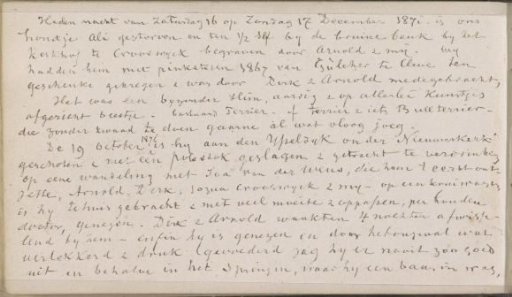 Heden nacht van Zaturdag 16 op Zondag 17 December 1871 is ons
hondje Ali gestorven en ten 1/2 bij de bruine beuk bij het
Kerkhof te Crooswyck begraven door Arnold & my. Wy
hadden hem met pinksteren 1867 van te Cleve ten
geschenke gekregen & was door Dirk & Arnold medegebracht,
Het was een byzonder slim, aardig & op allerlei kunstjes
afgericht beestje. bastaard Terrier. of Terrier & iets Bullterrier -
die zonder kwaad te doen gaarne al wat vloog joeg.
De 19 October 1871 is hy aan den Ysseldyk onder Nieuwerkerk
geschoten & met een polsstok geslagen & getracht te verdrinken
op eene wandeling met van der die hem 't eerst ont-
zette, Arnold, Dirk, Crooswyck & my - op een
is hy te huis gebracht & met veel moeite & oppassen, per honden-
doctor, genezen. Dirk & Arnold waakten 4 nachten afwisse-
lend by hem - enfin hy is genezen en door het ongeval wat
vertekkerd & druk gevoederd zag hy er nooit zoo goed
uit en behalve in het Springen, waar hy een baas in was,